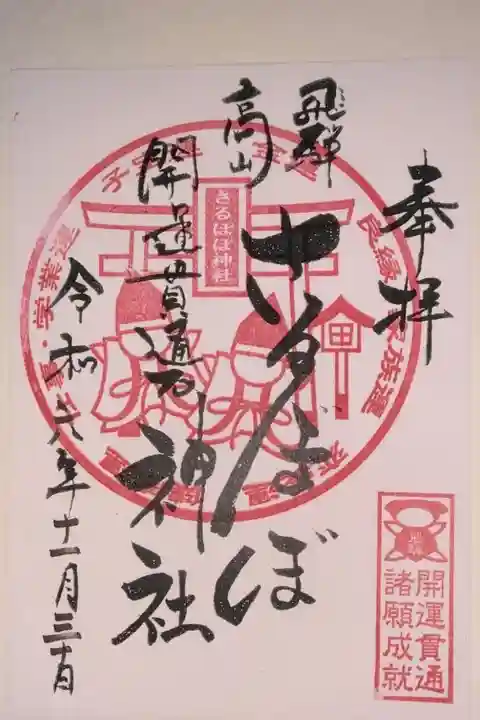 奉拝
飛騨
高山
さるぼぼ
開運貫通石
神社
令和六年十一月三十日
さるぼぼ神社
良縁
家族運
学業運
開運貫通
諸願成就